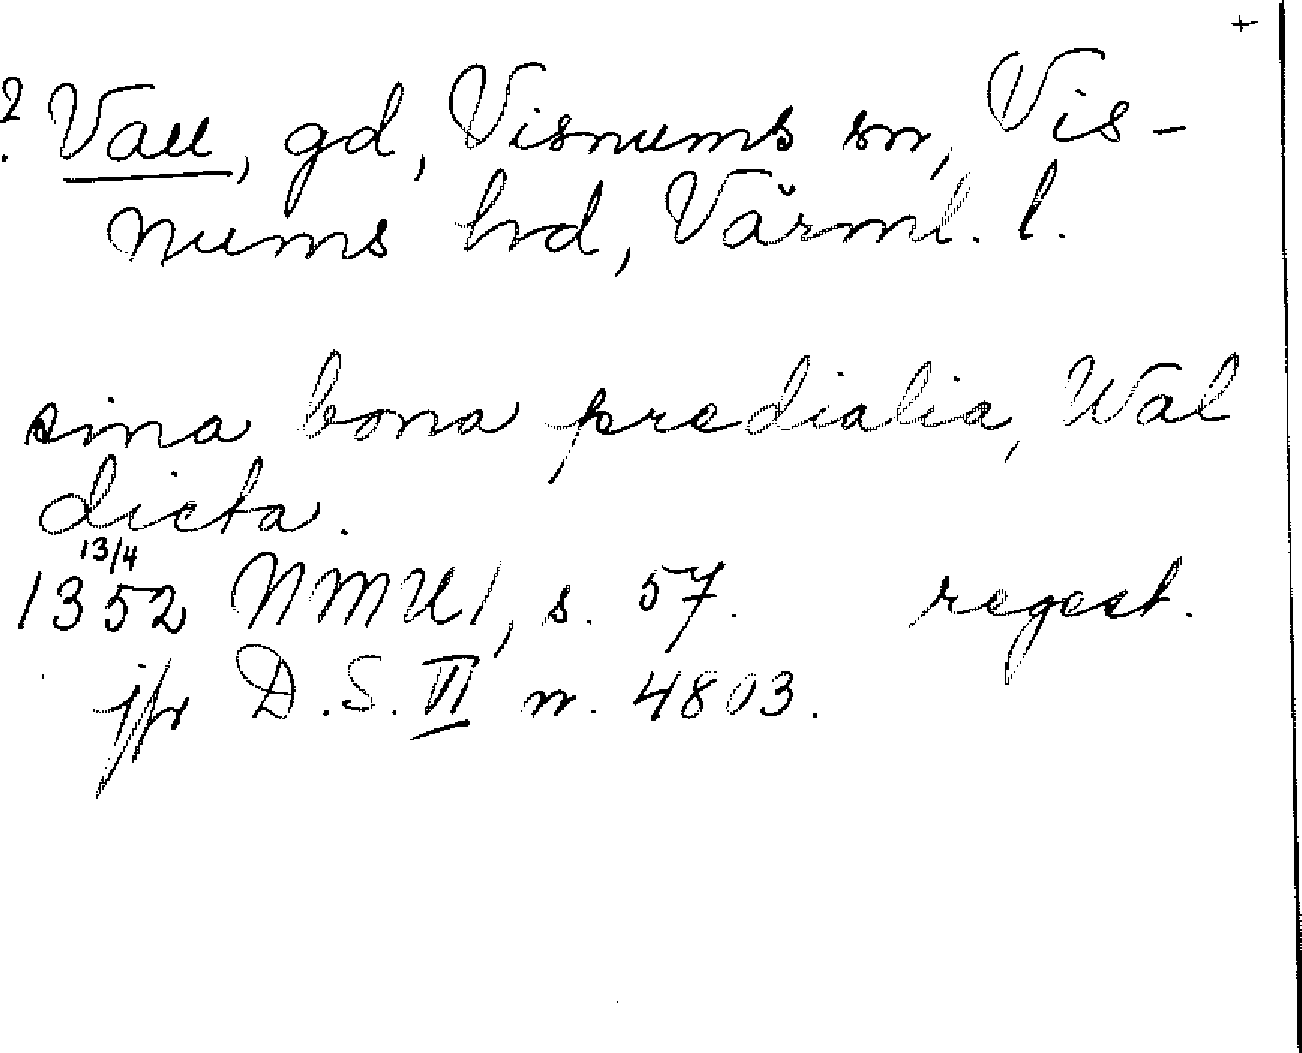 +
? Vall, gd, Visnums sn, Vis-
nums hd, Värml. l.
sina bona predialia, Wal
dicta.
13/4
1352 NMU1, s. 57. regest.
jfr D.S. VI n. 4803.